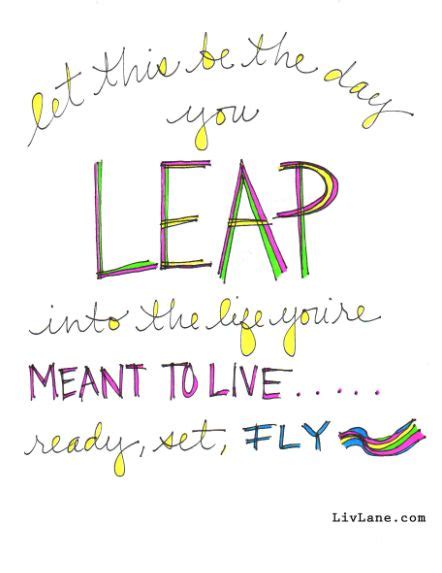 let this be the day
you
LEAP
into the life you're
MEANT TO LIVE.....
ready, set, FLY
LivLane.com